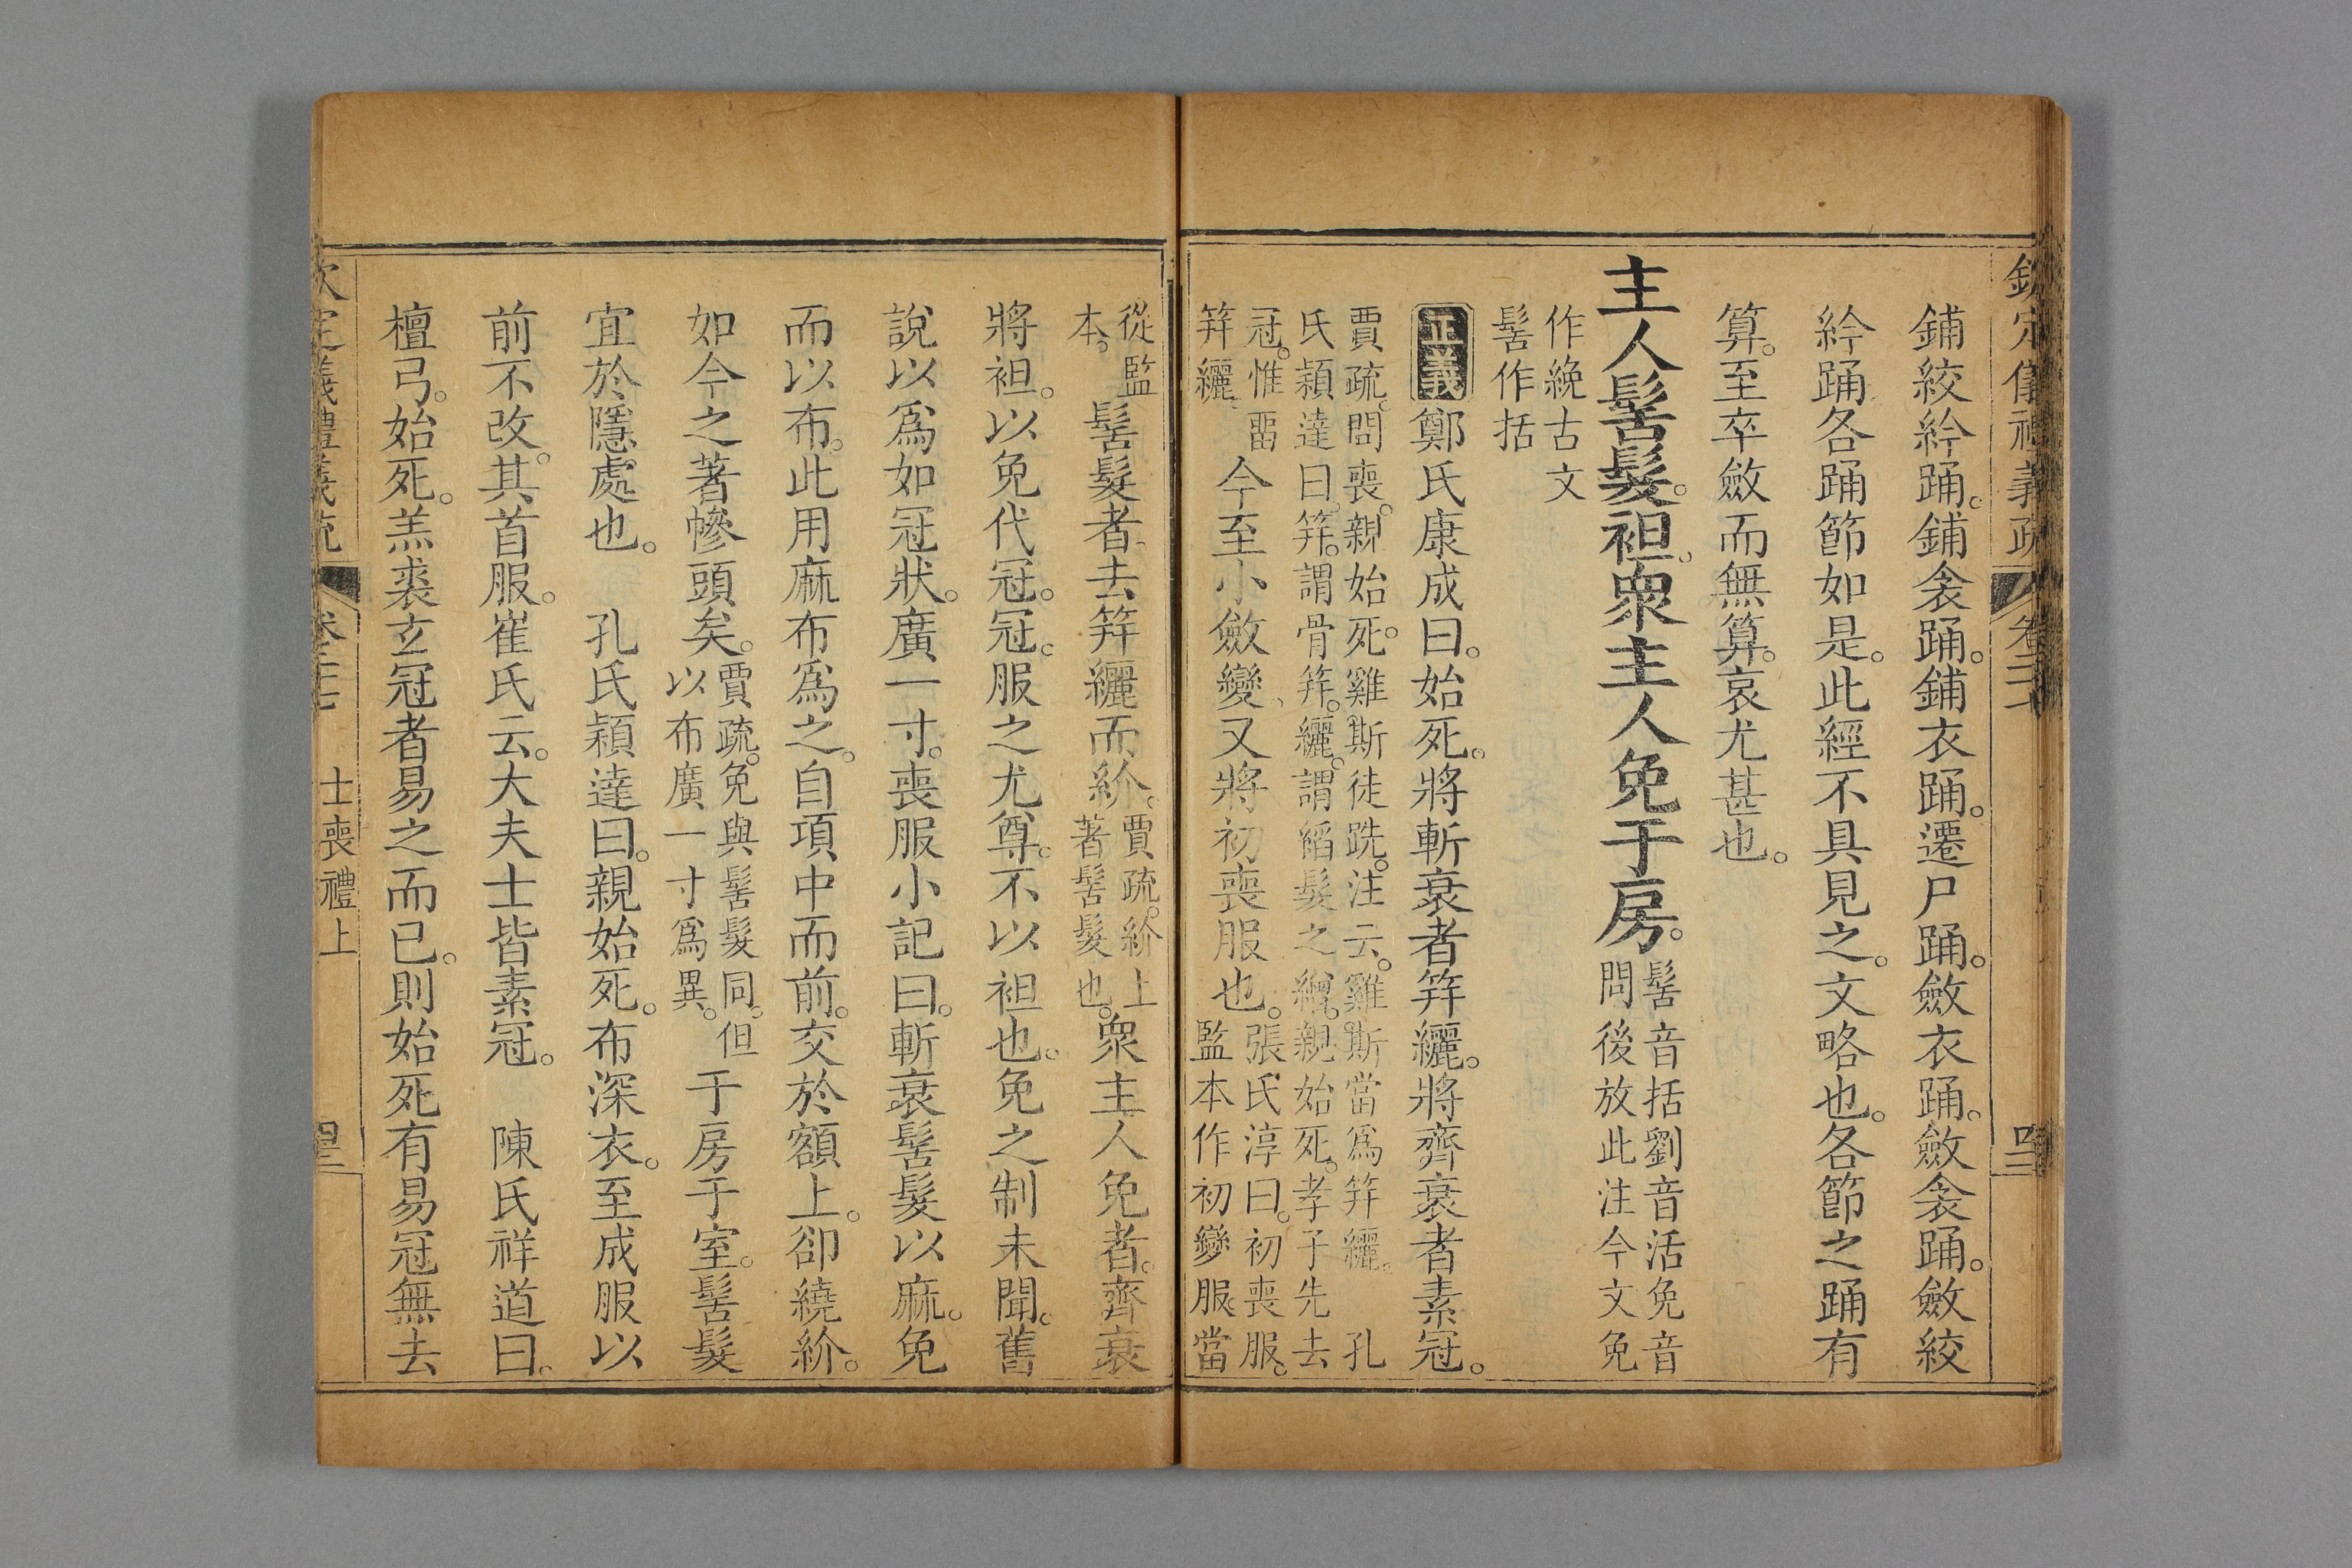 欽定儀禮義疏 卷二十七
鋪絞紟踊。鋪衾踊。鋪衣踊。遷尸踊。斂衣踊。斂衾踊。斂絞
紟踊各踊節如是。此經不具見之。文略也。各節之踊有
算。至卒斂而無算。哀尤甚也。
主人髺髮。袒。衆主人免于房。髺音括劉音活免音
問後放此注今文免
作絻古文
髺作括
正義 鄭氏康成曰。始死。將斬衰者笄纚。將齊衰者素冠。
賈疏。問喪。親始死。雞斯徒跣。注云。雞斯當爲笄纚。 孔
氏穎達曰。笄。謂骨笄。纚。謂韜髮之繒。親始死。孝子先去
冠。惟畱
笄纚。
今至小斂變、又將初喪服也。
張氏淳曰。初喪服。
監本作初變服。當
從監
本。
髺髮者、去笄纚而紒。
賈疏。紒上
著髺髮也。
衆主人免者。齊衰
將袒。以免代冠。冠。服之尤尊。不以袒也。免之制未聞。舊
說以爲如冠狀。廣一寸。喪服小記曰。斬衰髺髮以麻。免
而以布。此用麻布爲之。自項中而前。交於額上。卻繞紒。
如今之著幓頭矣。
賈疏。免與髺髮同。但
以布廣一寸爲異。
于房于室。髺髮
宜於隱處也。 孔氏穎達曰。親始死。布深衣。至成服以
前不改。其首服。崔氏云。大夫士皆素冠。 陳氏祥道曰。
檀弓。始死。羔裘玄冠者易之而已。則始死有易冠無去
欽定儀禮義疏 卷二十七 士喪禮上